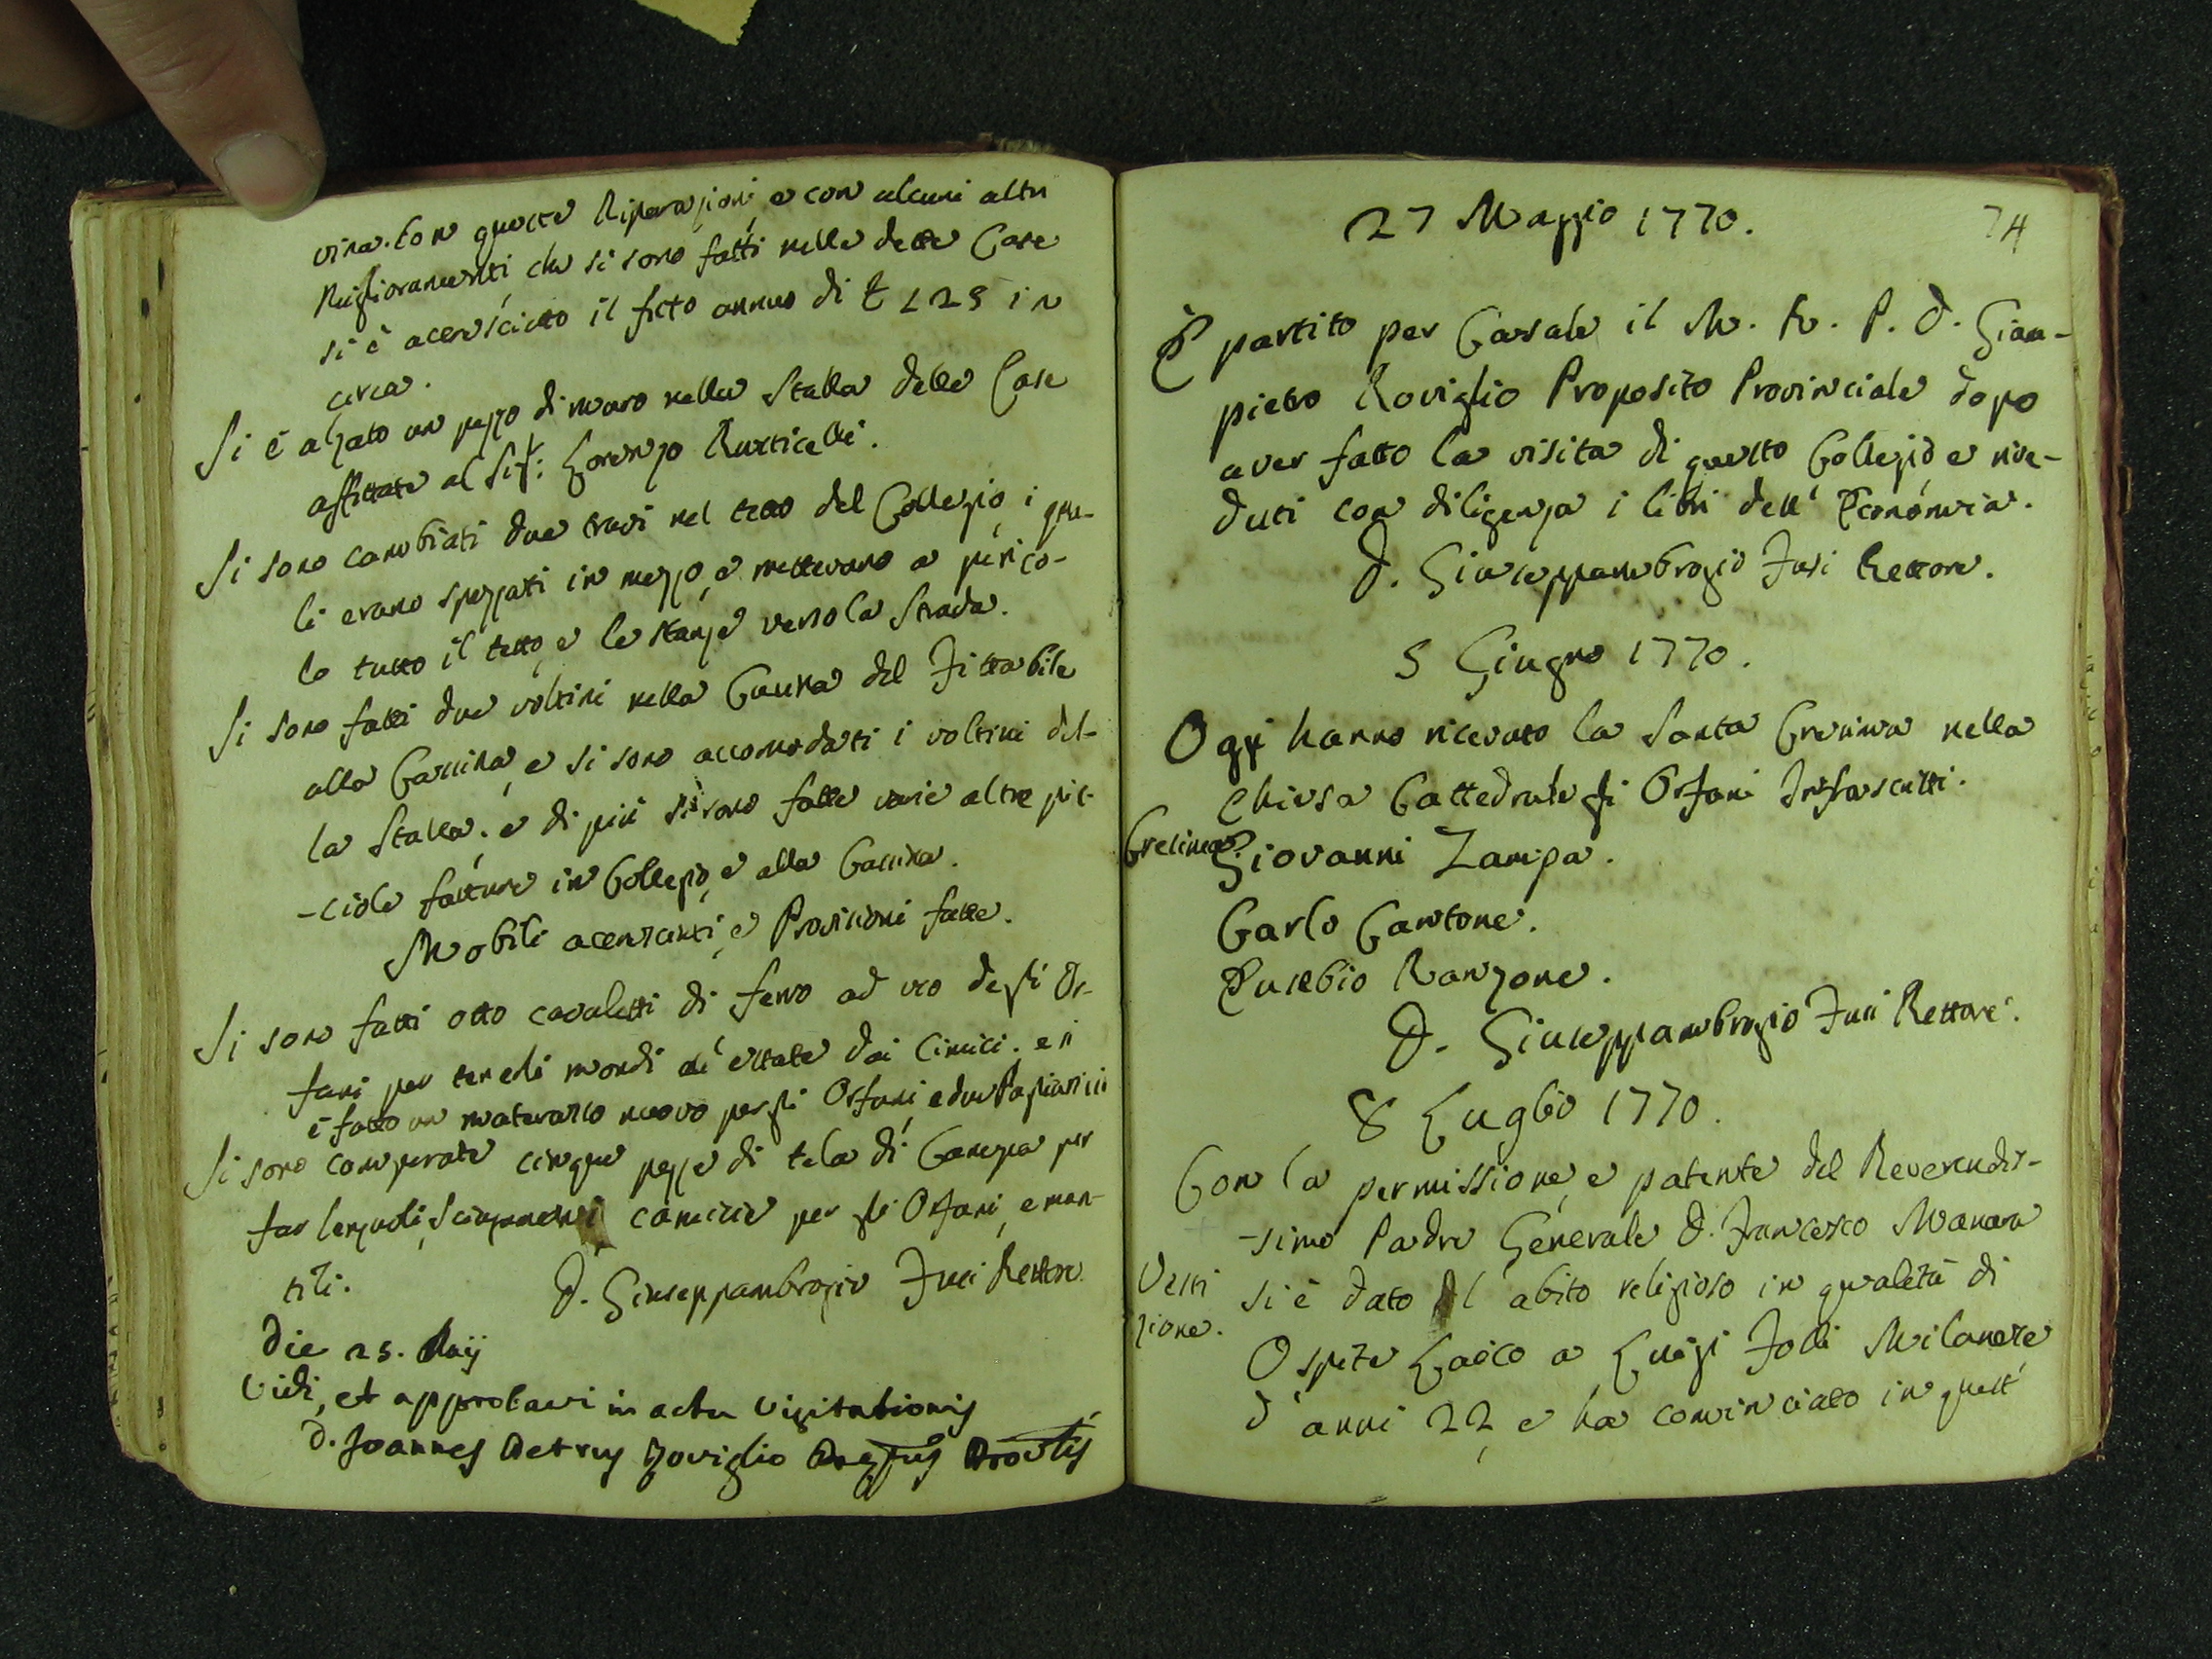 vina. Con queste Riparazioni, e con alcuni altri
Miglioramenti, che si sono fatti nelle dette Case
si è accresciuto il fitto annuo di £ 125 in
circa.
Si è alzato un pezzo di muro nella Stalla delle Case
affittate al Sig: Lorenzo Rusticelli.
Si sono cambiati due travi nel tetto del Collegio, i qua-
li erano spezzati in mezzo, e mettevano a perico-
lo tutto il tetto, e le stanze verso la Strada.
Si sono fatti due voltini nella Cucina del Fittabile
alla Cascina, e si sono accomodati i voltini del-
la Stalla. e di più si sono fatte varie altre pic-
-ciole fatture in Collegio, e alla Cascina.
Mobili accresciuti, e Provisioni fatte.
Si sono fatti otto cavaletti di ferro ad uso degli Or-
fani per tenerli mondi all' estate dai Cimici. e si
è fatto un materasso nuovo per gli Orfani, e due Pagliaricci
Si sono comperate cinque pezze di tela di Canepa per
far lenzuoli, Sciugamani, camicie per gli Orfani, e man-
tili.
D. Giuseppambrogio Fusi Rettore
Die 25. Maij
Vidi, et approbavi in actu Visitationis
D. Joannes Petrus Roviglio Praeptus Provlis
27 Maggio 1770.
74
È partito per Casale il M. R. P. D. Gian-
pietro Roviglio Proposito Provinciale dopo
aver fatto la visita di questo Collegio, e rive-
duti con diligenza i libri dell' Economia.
D. Giuseppambrogio Fusi Rettore.
5 Giugno 1770.
Oggi hanno ricevuto la Santa Cresima nella
Chiesa Cattedrale gli Orfani Infrascritti.
Cresima
Giovanni Zampa.
Carlo Cantone.
Eusebio Ranzone.
D. Giuseppambrogio Fusi Rettore.
8 Luglio 1770.
Con la permissione, e patente del Reverendis-
-simo Padre Generale D. Francesco Manara
Vesti
zione.
si è dato l' abito religioso in qualità di
Ospite Laico a Luigi Folli Milanese
d' anni 22, e ha cominciato in quest'